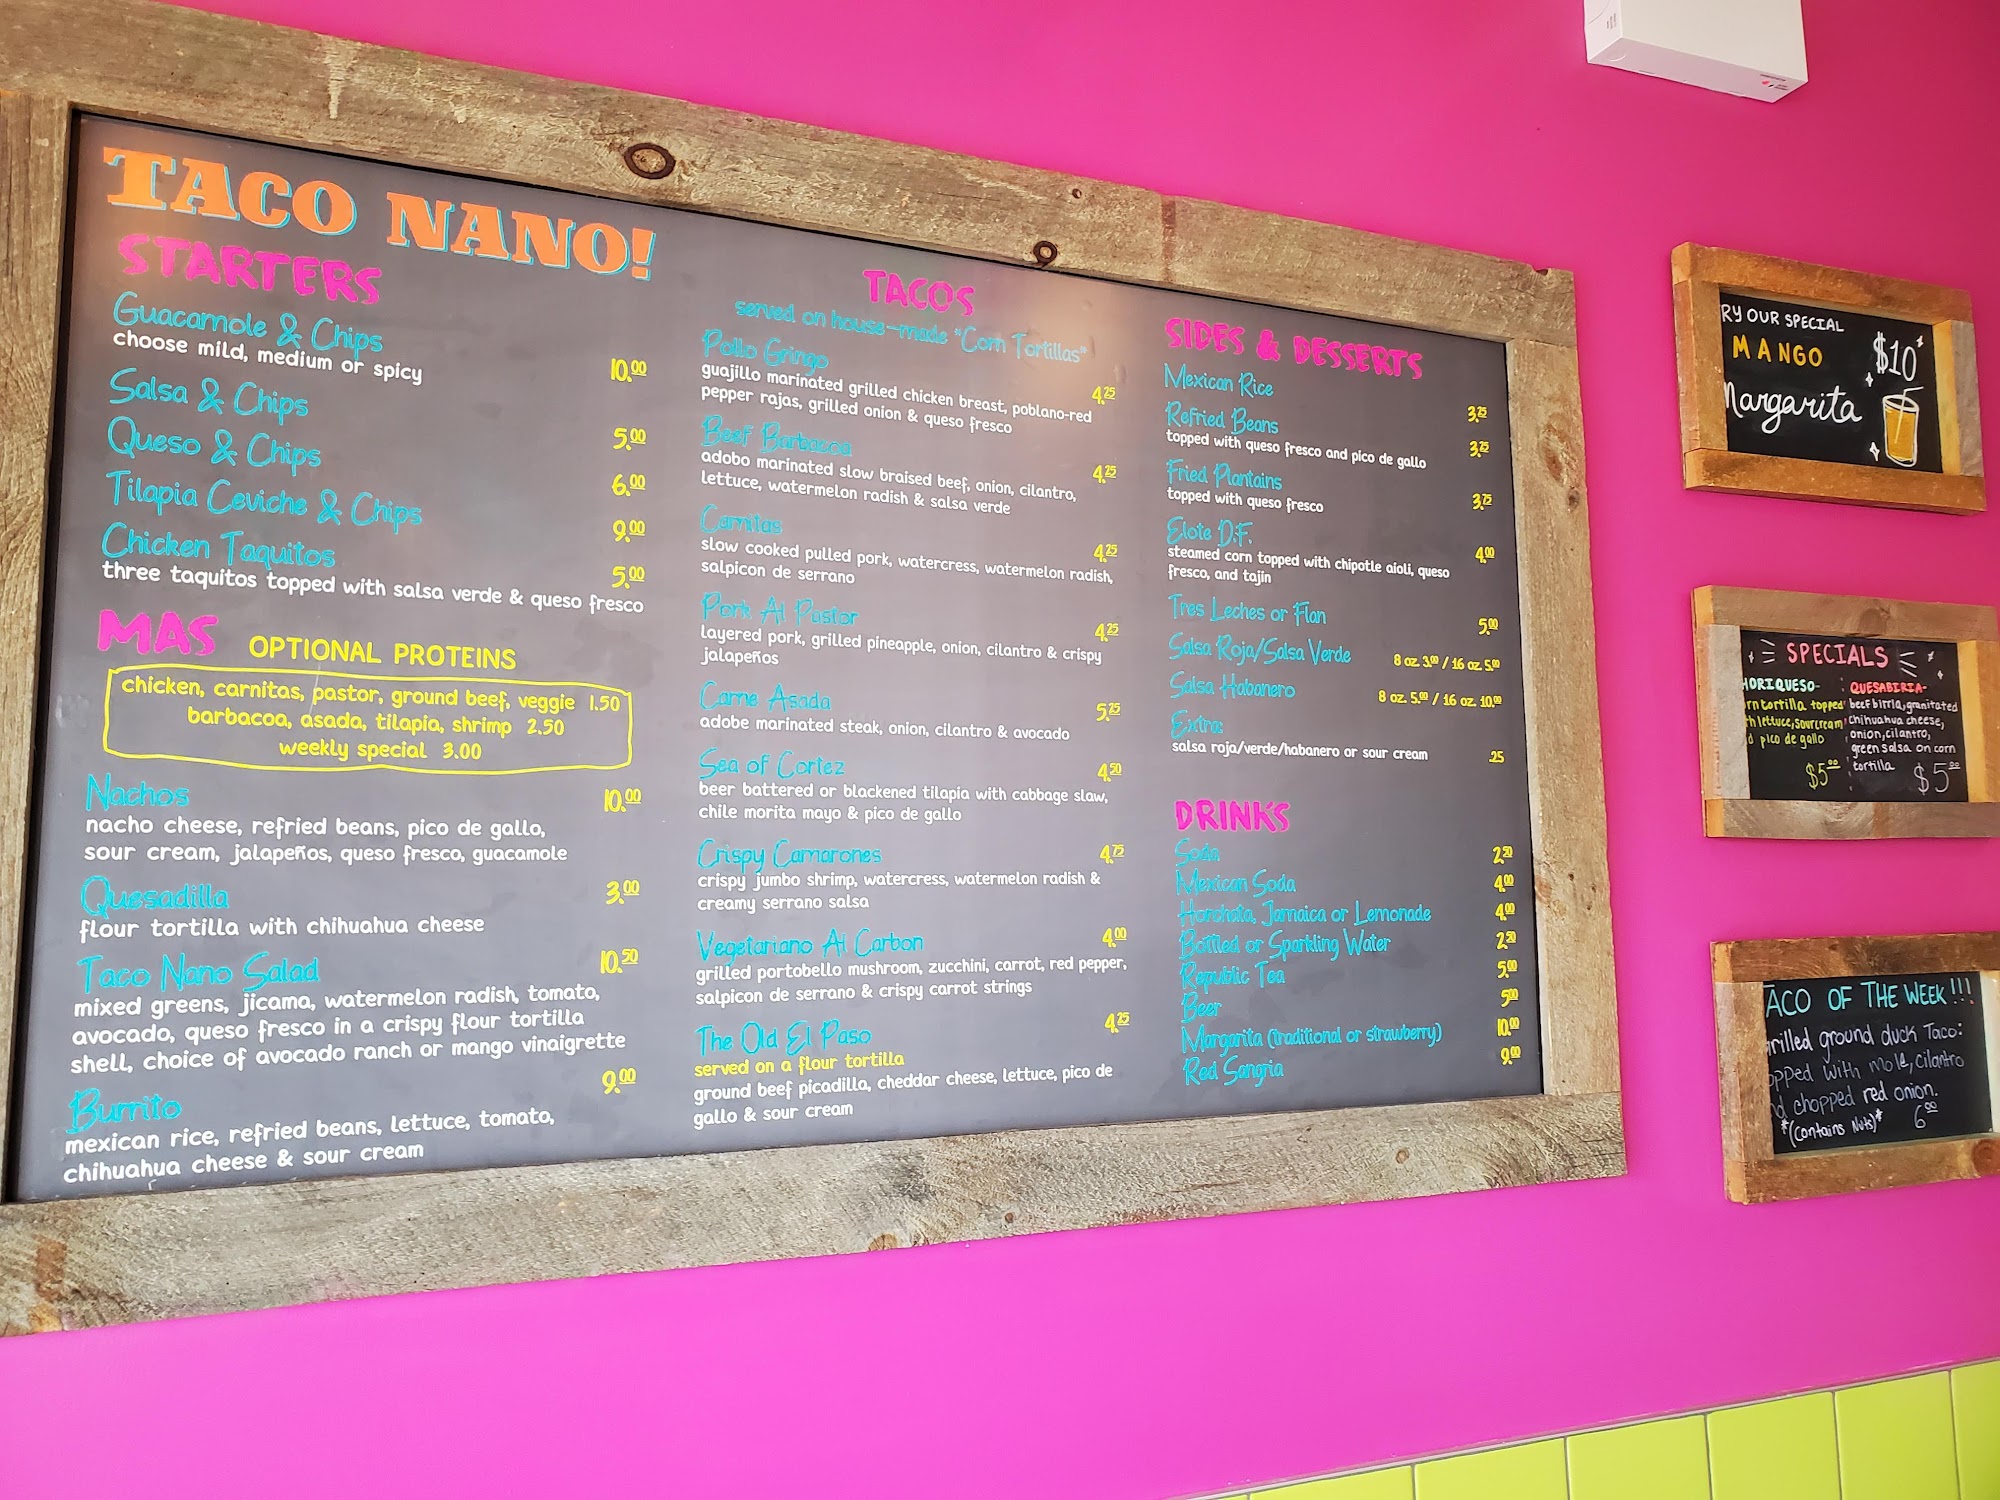 TACO NANO!
STARTERS
Guacamole & Chips
choose mild, medium or spicy 10.00
Salsa & Chips 5.00
Queso & Chips 6.00
Tilapia Ceviche & Chips 9.00
Chicken Taquitos 5.00
three taquitos topped with salsa verde & queso fresco
MAS OPTIONAL PROTEINS
chicken, carnitas, pastor, ground beef, veggie 1.50
barbacoa, asada, tilapia, shrimp 2.50
weekly special 3.00
Nachos 10.00
nacho cheese, refried beans, pico de gallo,
sour cream, jalapeños, queso fresco, guacamole
Quesadilla 3.00
flour tortilla with chihuahua cheese
Taco Nano Salad 10.50
mixed greens, jicama, watermelon radish, tomato,
avocado, queso fresco in a crispy flour tortilla
shell, choice of avocado ranch or mango vinaigrette
Burrito 9.00
mexican rice, refried beans, lettuce, tomato,
chihuahua cheese & sour cream
TACOS
served on house-made "Corn Tortillas"
Pollo Gringo 4.25
guajillo marinated grilled chicken breast, poblano-red
pepper rajas, grilled onion & queso fresco
Beef Barbacoa 4.25
adobo marinated slow braised beef, onion, cilantro,
lettuce, watermelon radish & salsa verde
Carnitas 4.25
slow cooked pulled pork, watercress, watermelon radish,
salpicon de serrano
Pork Al Pastor 4.25
layered pork, grilled pineapple, onion, cilantro & crispy
jalapeños
Carne Asada 5.25
adobe marinated steak, onion, cilantro & avocado
Sea of Cortez 4.50
beer battered or blackened tilapia with cabbage slaw,
chile morita mayo & pico de gallo
Crispy Camarones 4.75
crispy jumbo shrimp, watercress, watermelon radish &
creamy serrano salsa
Vegetariano Al Carbon 4.00
grilled portobello mushroom, zucchini, carrot, red pepper,
salpicon de serrano & crispy carrot strings
The Old El Paso 4.25
served on a flour tortilla
ground beef picadilla, cheddar cheese, lettuce, pico de
gallo & sour cream
SIDES & DESSERTS
Mexican Rice 3.25
Refried Beans 3.25
topped with queso fresco and pico de gallo
Fried Plantains 3.75
topped with queso fresco
Elote D.F. 4.00
steamed corn topped with chipotle aioli, queso
fresco, and tajin
Tres Leches or Flan 5.00
Salsa Roja/Salsa Verde 8 oz. 3.00 / 16 oz. 5.00
Salsa Habanero 8 oz. 5.00 / 16 oz. 10.00
Extra:
salsa roja/verde/habanero or sour cream .25
DRINKS
Soda 2.50
Mexican Soda 4.00
Horchata, Jamaica or Lemonade 4.00
Bottled or Sparkling Water 2.50
Republic Tea 5.00
Beer 5.00
Margarita (traditional or strawberry) 10.00
Red Sangria 9.00
RY OUR SPECIAL
MANGO $10
Margarita
SPECIALS
HORIQUESO-
rn tortilla topped
th lettuce, sour cream
d pico de gallo
$5.00
QUESABIRIA-
beef birria, granitated
chihuahua cheese,
onion, cilantro,
green salsa on corn
tortilla $5.00
TACO OF THE WEEK!!!
rilled ground duck Taco:
opped with mole, cilantro
nd chopped red onion.
*(Contains Nuts)* 6.00